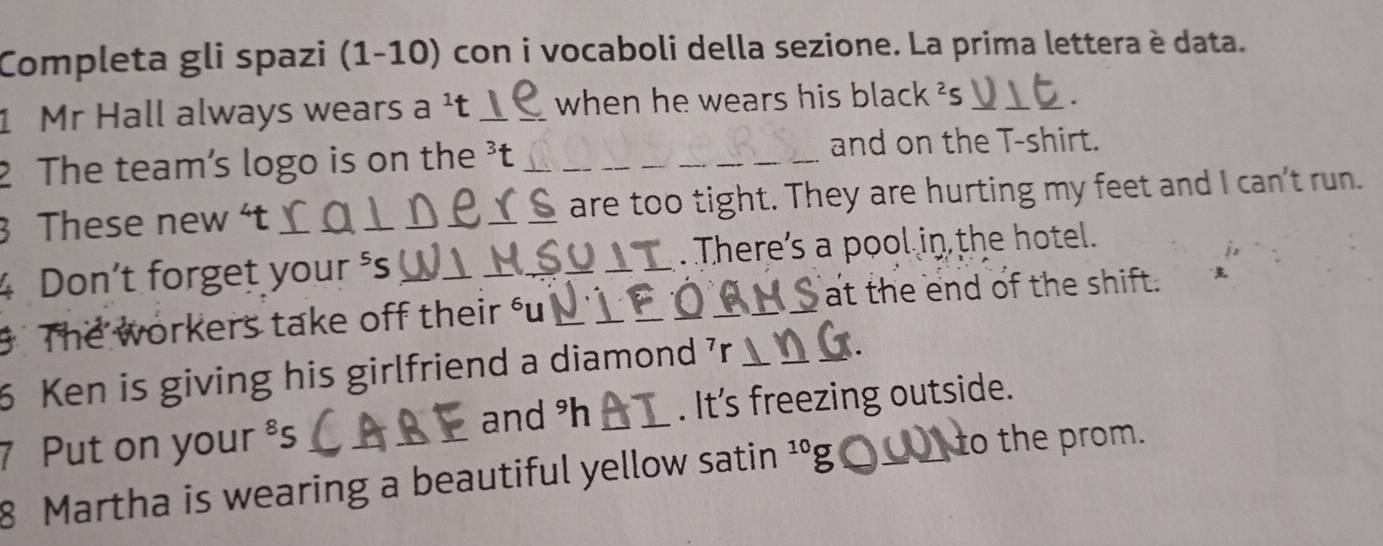 Completa gli spazi (1-10) con i vocaboli della sezione. La prima lettera è data.
1 Mr Hall always wears a ¹t ie when he wears his black ²s Uit.
2 The team's logo is on the ³t rousers and on the T-shirt.
3 These new ⁴t rainers are too tight. They are hurting my feet and I can't run.
4 Don't forget your ⁵s WIMSUIT. There's a pool in the hotel.
5 The workers take off their ⁶u NIFORMS at the end of the shift.
6 Ken is giving his girlfriend a diamond ⁷r inG.
7 Put on your ⁸s CARF and ⁹h AT. It's freezing outside.
8 Martha is wearing a beautiful yellow satin ¹⁰g OWN to the prom.